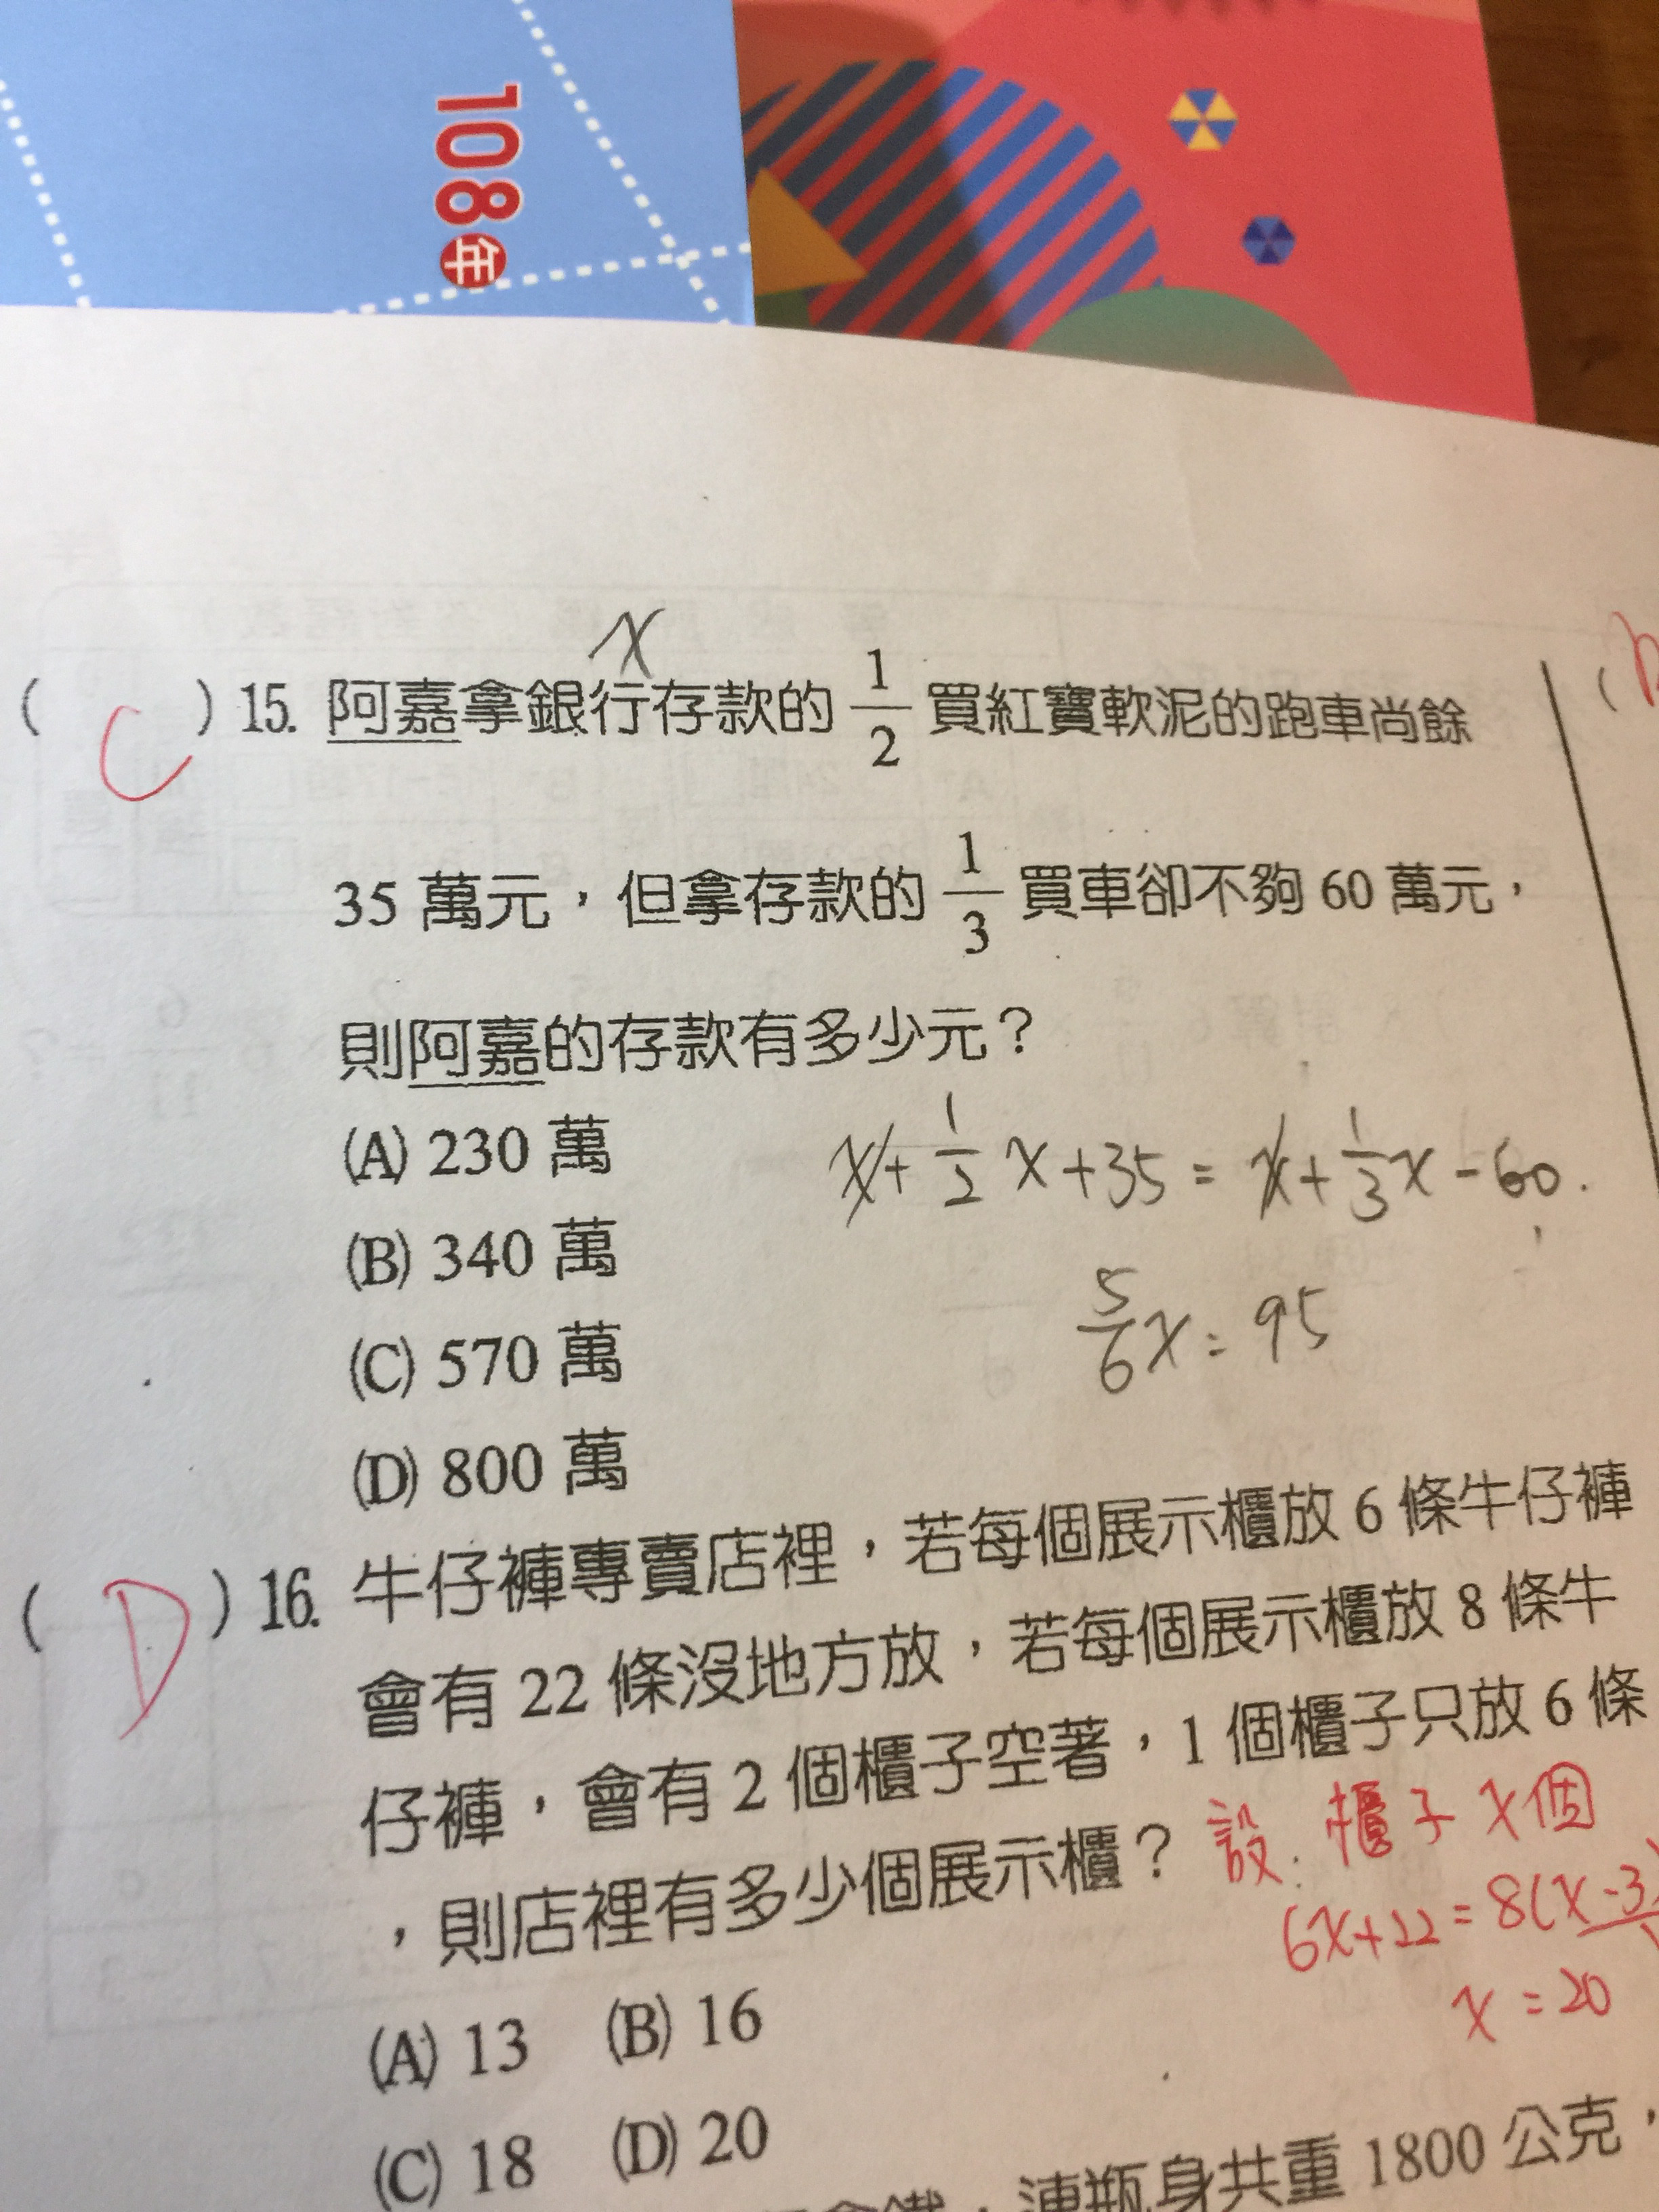 108年
x
( C ) 15. 阿嘉拿銀行存款的 1/2 買紅寶軟泥的跑車尚餘
35 萬元，但拿存款的 1/3 買車卻不夠 60 萬元，
則阿嘉的存款有多少元？
(A) 230 萬
x+1/2x+35=x+1/3x-60.
(B) 340 萬
5/6x=95
(C) 570 萬
(D) 800 萬
( D ) 16. 牛仔褲專賣店裡，若每個展示櫃放 6 條牛仔褲
會有 22 條沒地方放，若每個展示櫃放 8 條牛
仔褲，會有 2 個櫃子空著，1 個櫃子只放 6 條
，則店裡有多少個展示櫃？
設：櫃子 x個
6x+22=8(x-3)
x=20
(A) 13 (B) 16
(C) 18 (D) 20
，連瓶身共重 1800 公克，